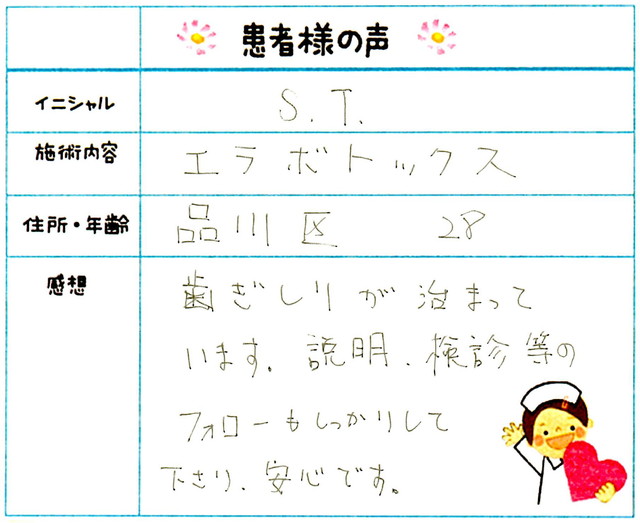 患者様の声
イニシャル S.T.
施術内容 エラボトックス
住所・年齢 品川区 28
感想 歯ぎしりが治まって
います。説明、検診等の
フォローもしっかりして
下さり、安心です。